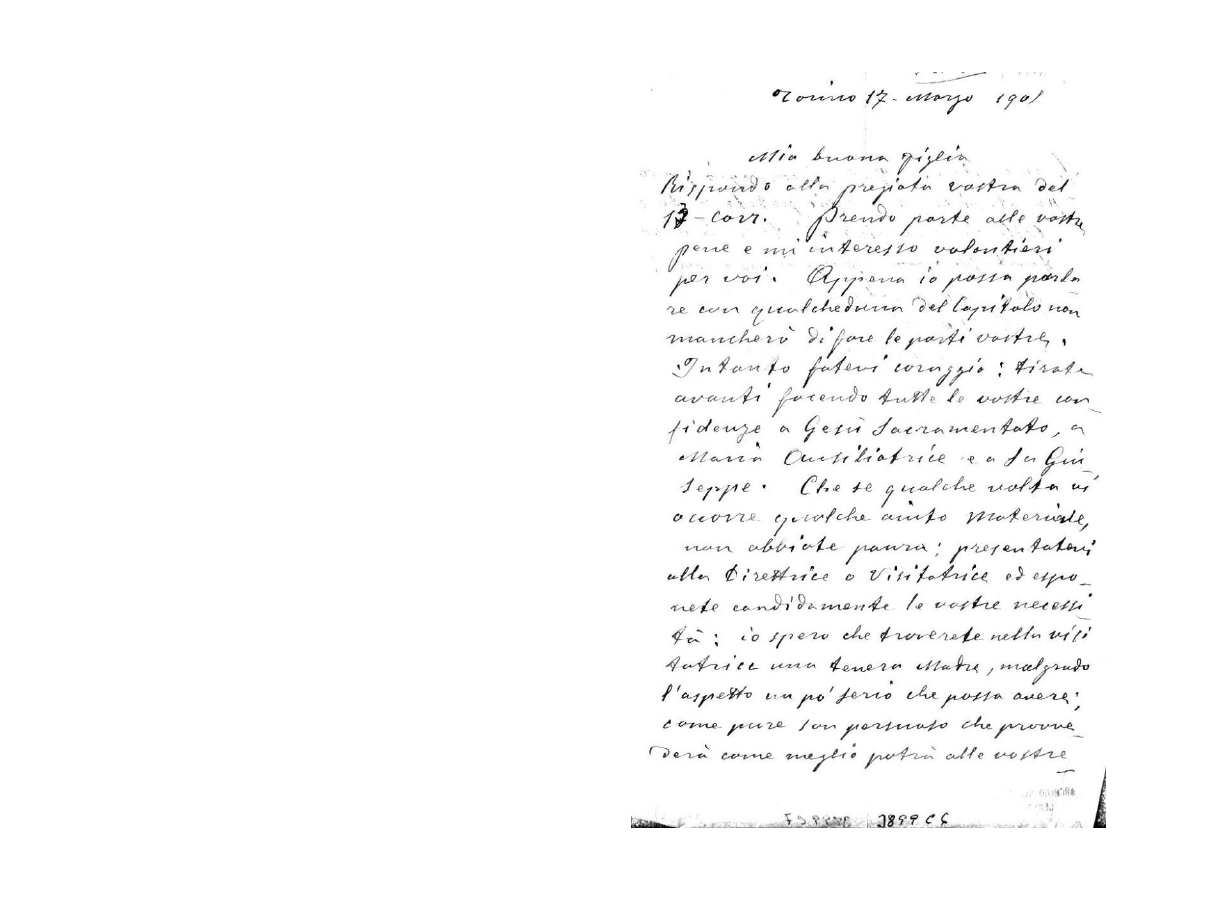 Torino 17- Marzo 1901
Mia buona figlia
Rispondo alla pregiata vostra del
13-corr. Prendo parte alle vostre
pene e mi interesso volontieri
per voi. Appena io possa parla
re con qualcheduna del Capitolo non
mancherò di fare le parti vostre.
Intanto fatevi coraggio: tirate
avanti facendo tutte le vostre con
fidenze a Gesù Sacramentato, a
Maria Ausiliatrice e a Sn Giu
seppe. Che se qualche volta vi
occorre qualche aiuto materiale,
non abbiate paura; presentatevi
alla Direttrice o Visitatrice ed espo-
nete candidamente le vostre necessi
tà; io spero che troverete nella visi
tatrice una tenera Madre, malgrado
l'aspetto un po' serio che possa avere;
come pure son persuaso che provve-
derà come meglio potrà alle vostre
3899 C 6